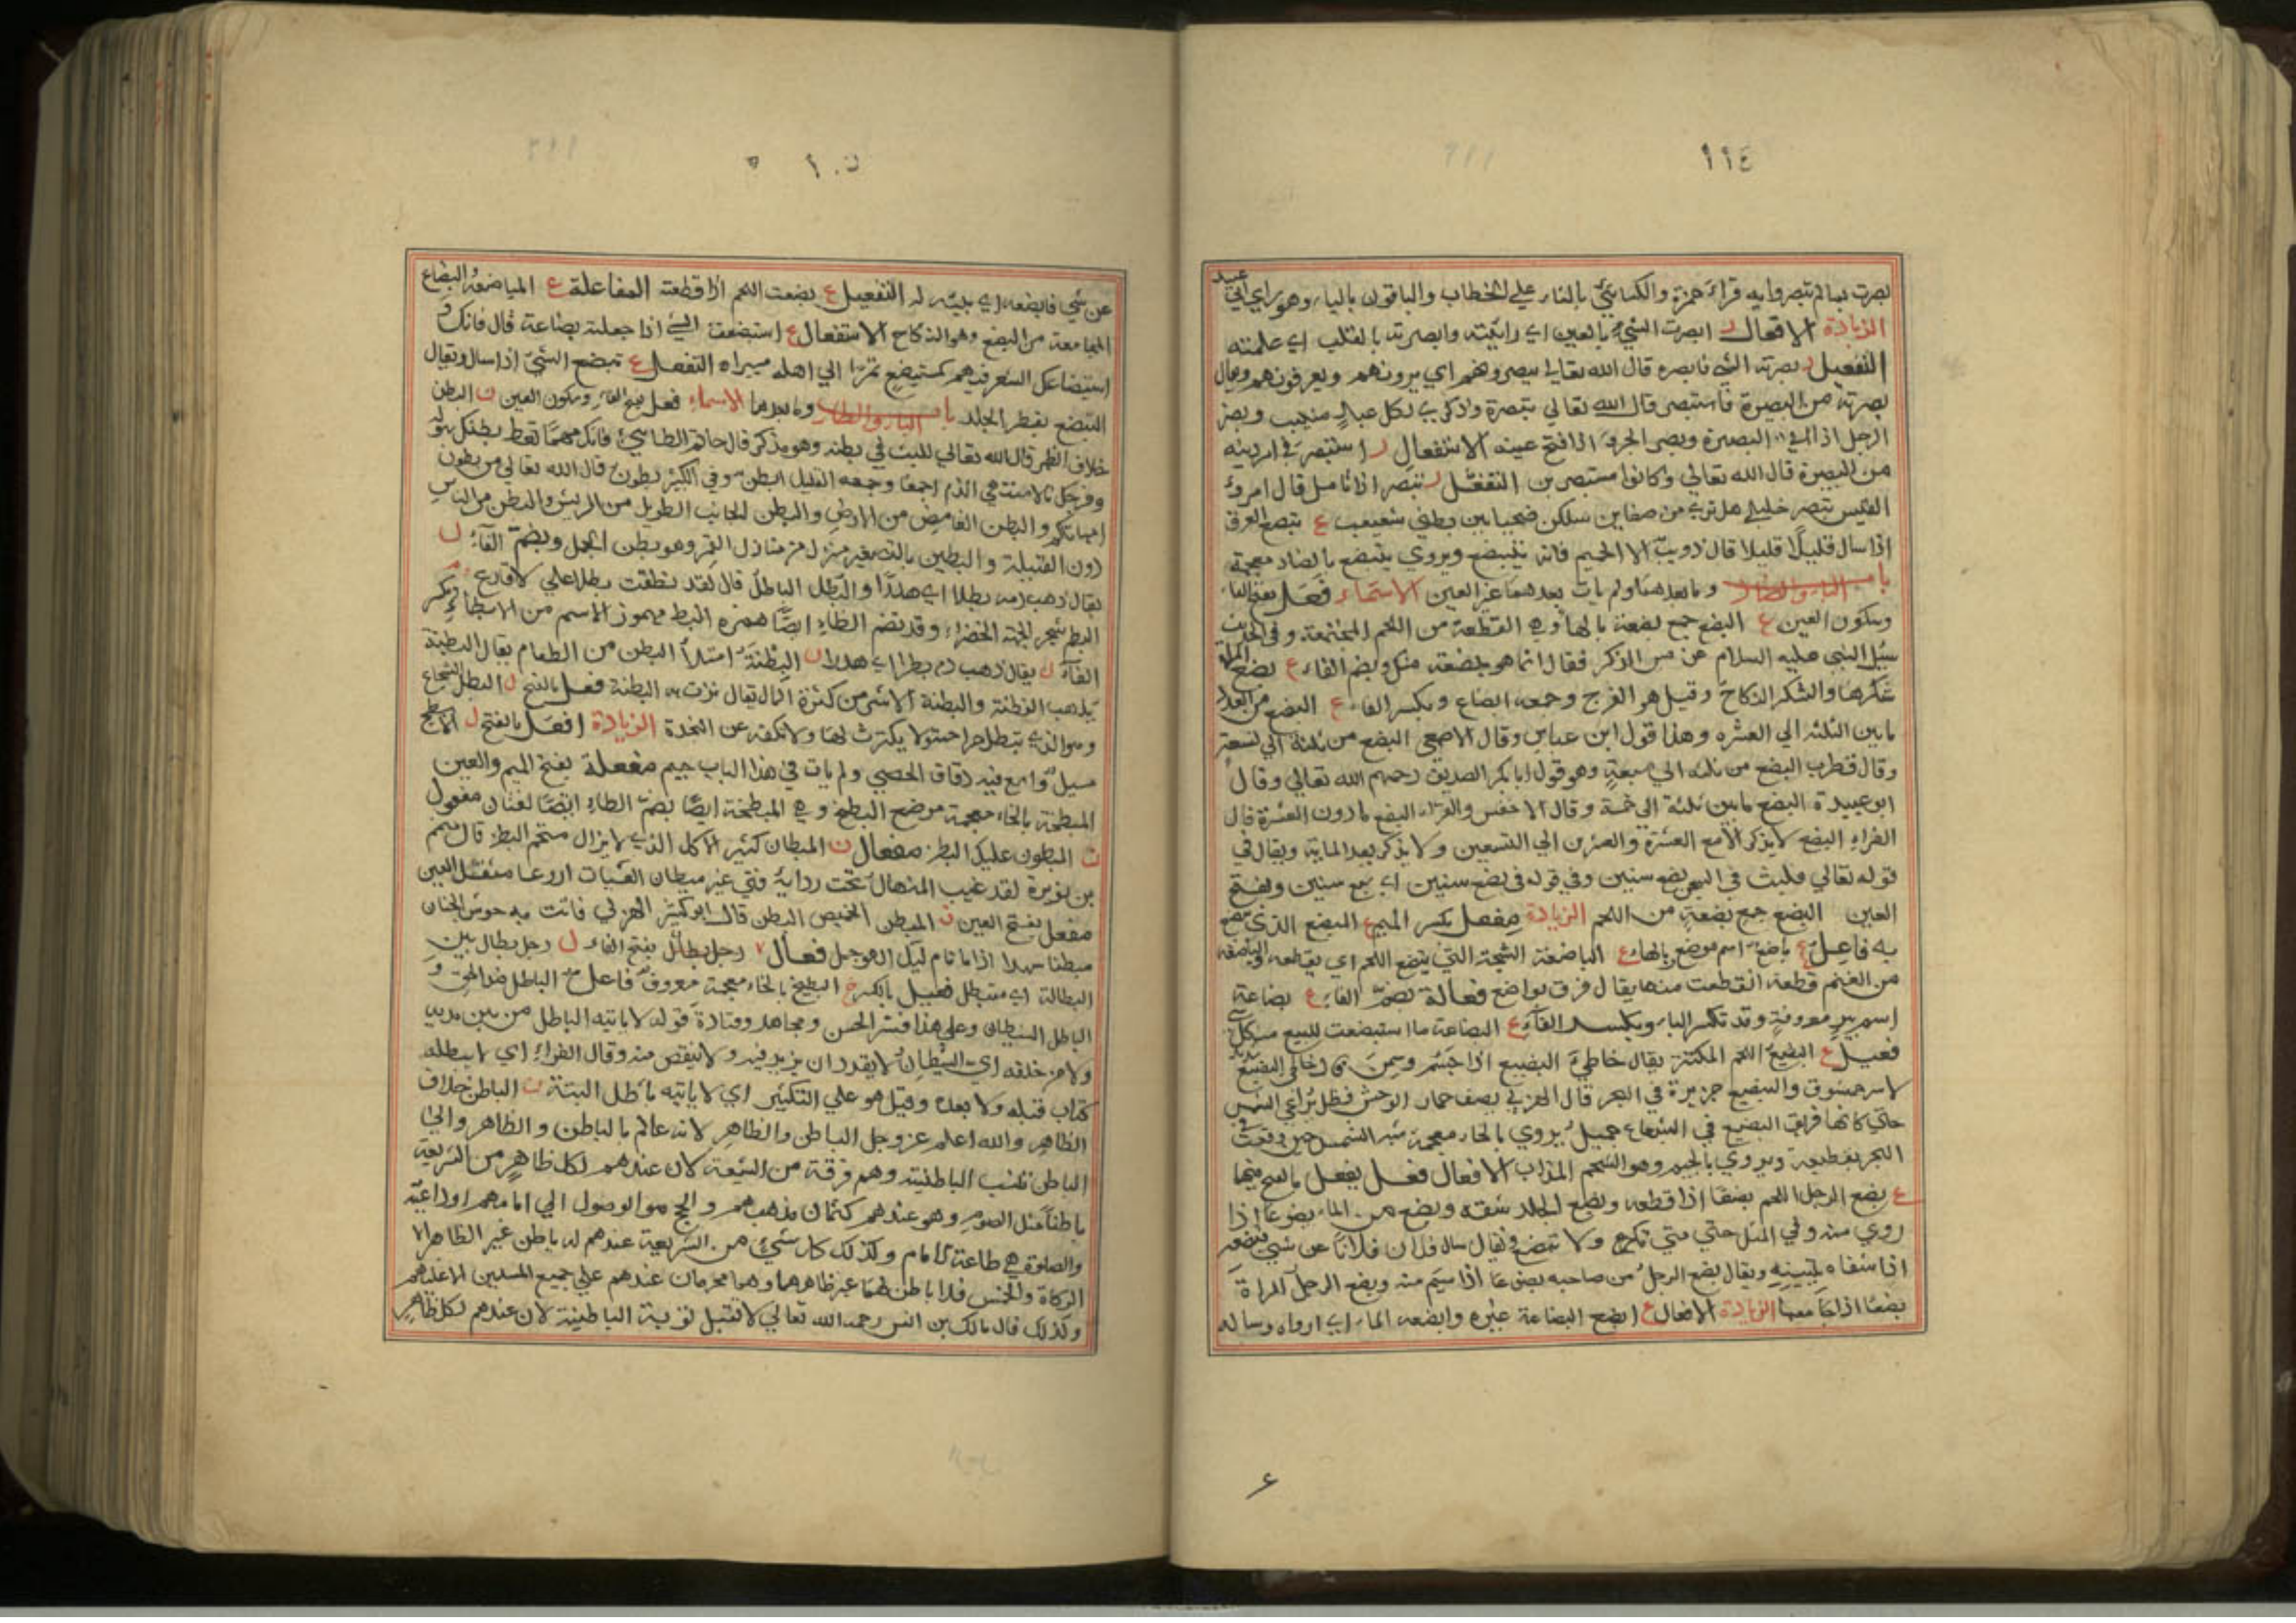 ١١٤
بصرت بما لم تبصروا به قراءة حمزة والكسائي بالتاء على الخطاب والباقون بالياء وهو راي ابي عبيد
الزيادة الافعال ر ابصرت الشيء بالعين اي رايته وابصرته بالقلب اي علمته
التفعيل ر بصرته الشي فابصره قال الله تعالى يبصرونهم اي يرونهم ويعرفونهم ويقال
بصرته من البصيرة فاستبصر قال الله تعالى تبصرة وذكرى لكل عبد منيب وبصر
الرجل اذا البصيرة وبصر الجرو اذا فتح عينه الاستفعال ر استبصر في امر دينه
من البصيرة قال الله تعالى وكانوا مستبصرين التفعّل ر تبصر اذا تامل قال امرؤ
القيس تبصر خليلي هل ترى من ضعاين سلكن ضحيا بين بطني شعبعب ع تبصع العرق
اذا سال قليلًا قليلا قال ذويب الا الحميم فانه يتبصع ويروي يتبضع بالضاد معجمة
باب الباء والضاد وما بعدهما ولم يات بعدهما غير العين الاسماء فَعل بفتح الفاء
وسكون العين ع البضع جمع بضعة بالهاء وهي القطعة من اللحم المجتمعة وفي الحديث
سئل النبي عليه السلام عن مس الذكر فقال انما هو بضعة منك وبضم الفاء ع بضع المراة
شكرها والشكر النكاح وقيل هو الفرج وجمعه ابضاع وبكسر الفاء ع البضع من العدد
ما بين الثلثه الى العشره وهذا قول ابن عباس وقال الاصمعي البضع من ثلثة الى تسعة
وقال قطرب البضع من ثلثه الى سبعةٍ وهو قول ابا بكر الصديق رحمهم الله تعالى وقال
ابو عبيدة البضع ما بين ثلثة الى خمسة وقال الاخفس والفراء البضع ما دون العشرة قال
الفراء البضع لا يذكر الا مع العشرة والعشرين الى التسعين ولا يذكر بعد الماية ويقال في
قوله تعالى فلبث في السجن بضع سنين وفي قوله في بضع سنين اي سبع سنين وبفتح
العين البضع جمع بضعةٍ من اللحم الزيادة مِفعل بكسر الميم ع المبضع الذي يبضع
به فاعِل ع باضع اسم موضع بالهاء ع الباضعة الشجة التي يبضع اللحم اي يقطعه والباضعة
من الغنم قطعة انقطعت منها يقال فرق بواضع فعالة بضمّ الفاء ع بضاعة
اسم بيرٍ معروفةٍ وقد تكسر الباء وبكسر الفاء ع البضاعة ما استبضعت للبيع من كل شي
فعيل ع البضيع اللحم المكتنز يقال خاطي البضيع اذا جسُم وسمن
والبضيع جزيرة في البحر قال الهذلي يصف حمار الوحش فظل يُراعي الشمس
حتى كانها فويق البضيع في الشعاع جميل يروي بالحاء معجمة شبه الشمس حين وقعت في
البحر بقطيعة ويروي بالجيم وهو الشحم المذاب الافعال فعل يفعل بالفتح فيهما
ع بضع الرجل اللحم بضعًا اذا قطعه وبضع الجلد شقه وبضع من الماء بضوعًا اذا
روي منه وفي المثل حتى متى تكرع ولا تبضع ويقال سال فلان فلانًا عن شي فبضعه
اذا شفاه بتبيينه ويقال بضع الرجلُ من صاحبه بضوعًا اذا سئم منه وبضع الرجل المراة
بضعًا اذا جامعها الزيادة الافعال ع ابضع البضاعة غيره وابضعه الماء اي ارواه وساله
ع
عن شي فابضعه اي بينه له التفعيل ع بضعت اللحم اذا قطعته المفاعلة ع المباضعة والبضاع
المجامعة من البضع وهو النكاح الاستفعال ع استبضعت الشي اذا جعلته بضاعة قال فانك و
استبضاعك الشعر فيهم كمستبضع تمرًا الى اهله التفعل ع تبضع الشيء اذا سال ويقال
التبضع تفطر الجلد باب الباء والطاء وما بعدهما الاسماء فعل بفتح الفاء وسكون العين ن البطن
خلاف الظهر قال الله تعالى للبث في بطنه وهو مذكر قال حاتم الطايي فانك مهما تعط بطنك سؤله
وفرجك نالا منتهى الذم اجمعا وجمعه القليل ابطن وفي الكثير بطون قال الله تعالى من بطون
امهاتكم والبطن الغامض من الارض والبطن الجانب الطويل من الريش والبطن من الناس
دون القبيلة والبطين بالتصغير منزل من منازل القمر وهو بطن الحمل وبضم الفاء ل
يقال ذهب دمه بطلا اي هدرًا والبطل الباطل قال لقد نطقت بطلا علي الاقارع
البطم شجر الحبة الخضراء وقد تضم الطاء ايضًا همزه البطء مهموز الاسم من الابطاء وبكسر
الفاء ر يقال ذهب دمه بطرا اي هدرا ن البِطْنَة امتلأ البطن من الطعام يقال البطنة
تذهب الفطنة والبطنة الاشر من كثرة المال يقال نزت به البطنة فعل بالفتح ل البطل الشجاع
وهو الذي تبطل جراحته لا يكترث لها ولا تكفه عن النجدة الزيادة افعل بالفتح ح الابطح
مسيل واسع فيه دقاق الحصى ولم يات في هذا الباب جيم مفعلة بفتح الميم والعين
المبطخة بالخاء معجمة موضع البطيخ وهي المبطخة ايضًا بضم الطاء ايضًا لغتان مفعول
ن المبطون عليل البطن مفعال ن المبطان كثير الاكل الذي لا يزال متخم البطن قال متمم
بن نويرة لقد غيب المنهال تحت ردايه فتي غير مبطان العشيات اروعا مثقل العين
مفعل بفتح العين ن المبطن الخميص البطن قال ابو كبير الهزلي فاتت به حوش الجنان
مبطنا سهدا اذا ما نام ليل الهوجل فعال بفتح الفاء ل رجل بطال بين
البطالة اي متبطل فعيل بالكسر خ البطيخ بالخاء معجمة معروف فاعل ل الباطل ضد الحق و
الباطل الشيطان وعلى هذا فسر الحسن ومجاهد وقتادة قوله لا ياتيه الباطل من بين يديه
ولا من خلفه اي الشيطان لا يقدر ان يزيد فيه ولا ينقص منه وقال الفراء اي لا يبطله
كتاب قبله ولا بعده وقيل هو على التكثير اي لا ياتيه باطل البتة ن الباطن خلاف
الظاهر والله اعلم عز وجل الباطن والظاهر لانه عالم بالباطن والظاهر والى
الباطن تنسب الباطنية وهم فرقة من الشيعة لان عندهم لكل ظاهرٍ من الشريعة
باطناً مثل الصوم وهو عندهم كتمان مذهبهم والحج هو الوصول الى امامهم او داعيه
والصلوة هي طاعة الامام وكذلك كل شيء من الشريعة عندهم له باطن غير الظاهر الا
الزكاة والخمس فلا باطن لهما غير ظاهرهما وهما محرمان عندهم على جميع المسلمين الا عليهم
وكذلك قال مالك بن انس رحمه الله تعالى لا تقبل توبة الباطنية لان عندهم لكل ظاهرٍ